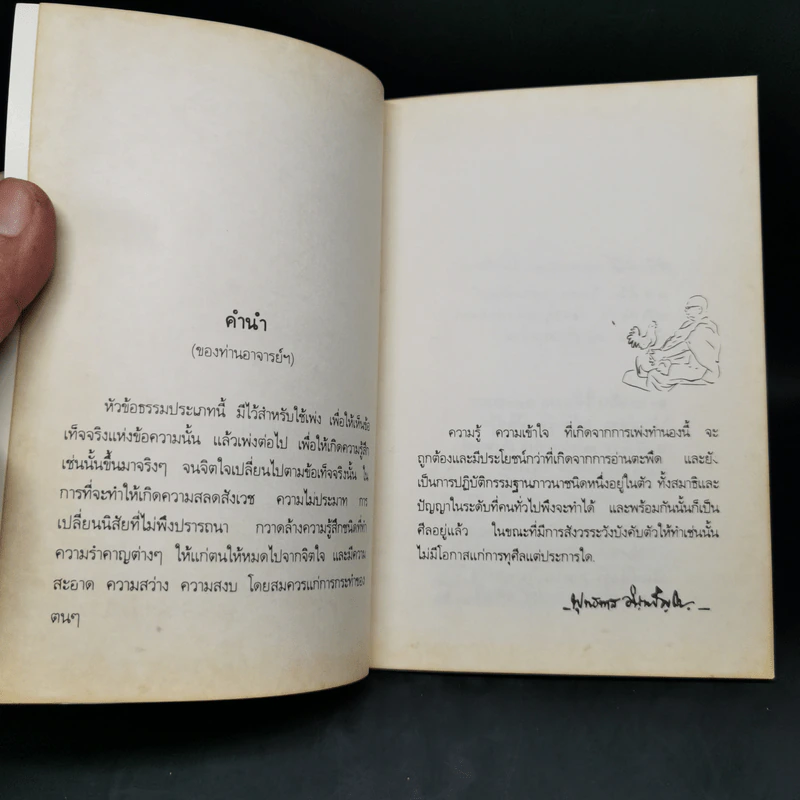 คำนำ
(ของท่านอาจารย์ฯ)
หัวข้อธรรมประเภทนี้ มีไว้สำหรับใช้เพ่ง เพื่อให้เห็นข้อ
เท็จจริงแห่งข้อความนั้น แล้วเพ่งต่อไป เพื่อให้เกิดความรู้สึก
เช่นนั้นขึ้นมาจริงๆ จนจิตใจเปลี่ยนไปตามข้อเท็จจริงนั้น ใน
การที่จะทำให้เกิดความสลดสังเวช ความไม่ประมาท การ
เปลี่ยนนิสัยที่ไม่พึงปรารถนา กวาดล้างความรู้สึกชนิดที่ทำ
ความรำคาญต่างๆ ให้แก่ตนให้หมดไปจากจิตใจ และมีความ
สะอาด ความสว่าง ความสงบ โดยสมควรแก่การกระทำของ
ตนๆ
ความรู้ ความเข้าใจ ที่เกิดจากการเพ่งทำนองนี้ จะ
ถูกต้องและมีประโยชน์กว่าที่เกิดจากการอ่านตะพึด และยัง
เป็นการปฏิบัติกรรมฐานภาวนาชนิดหนึ่งอยู่ในตัว ทั้งสมาธิและ
ปัญญาในระดับที่คนทั่วไปพึงจะทำได้ และพร้อมกันนั้นก็เป็น
ศีลอยู่แล้ว ในขณะที่มีการสังวรระวังบังคับตัวให้ทำเช่นนั้น
ไม่มีโอกาสแก่การทุศีลแต่ประการใด.
พุทธทาส อินทปัญโญ